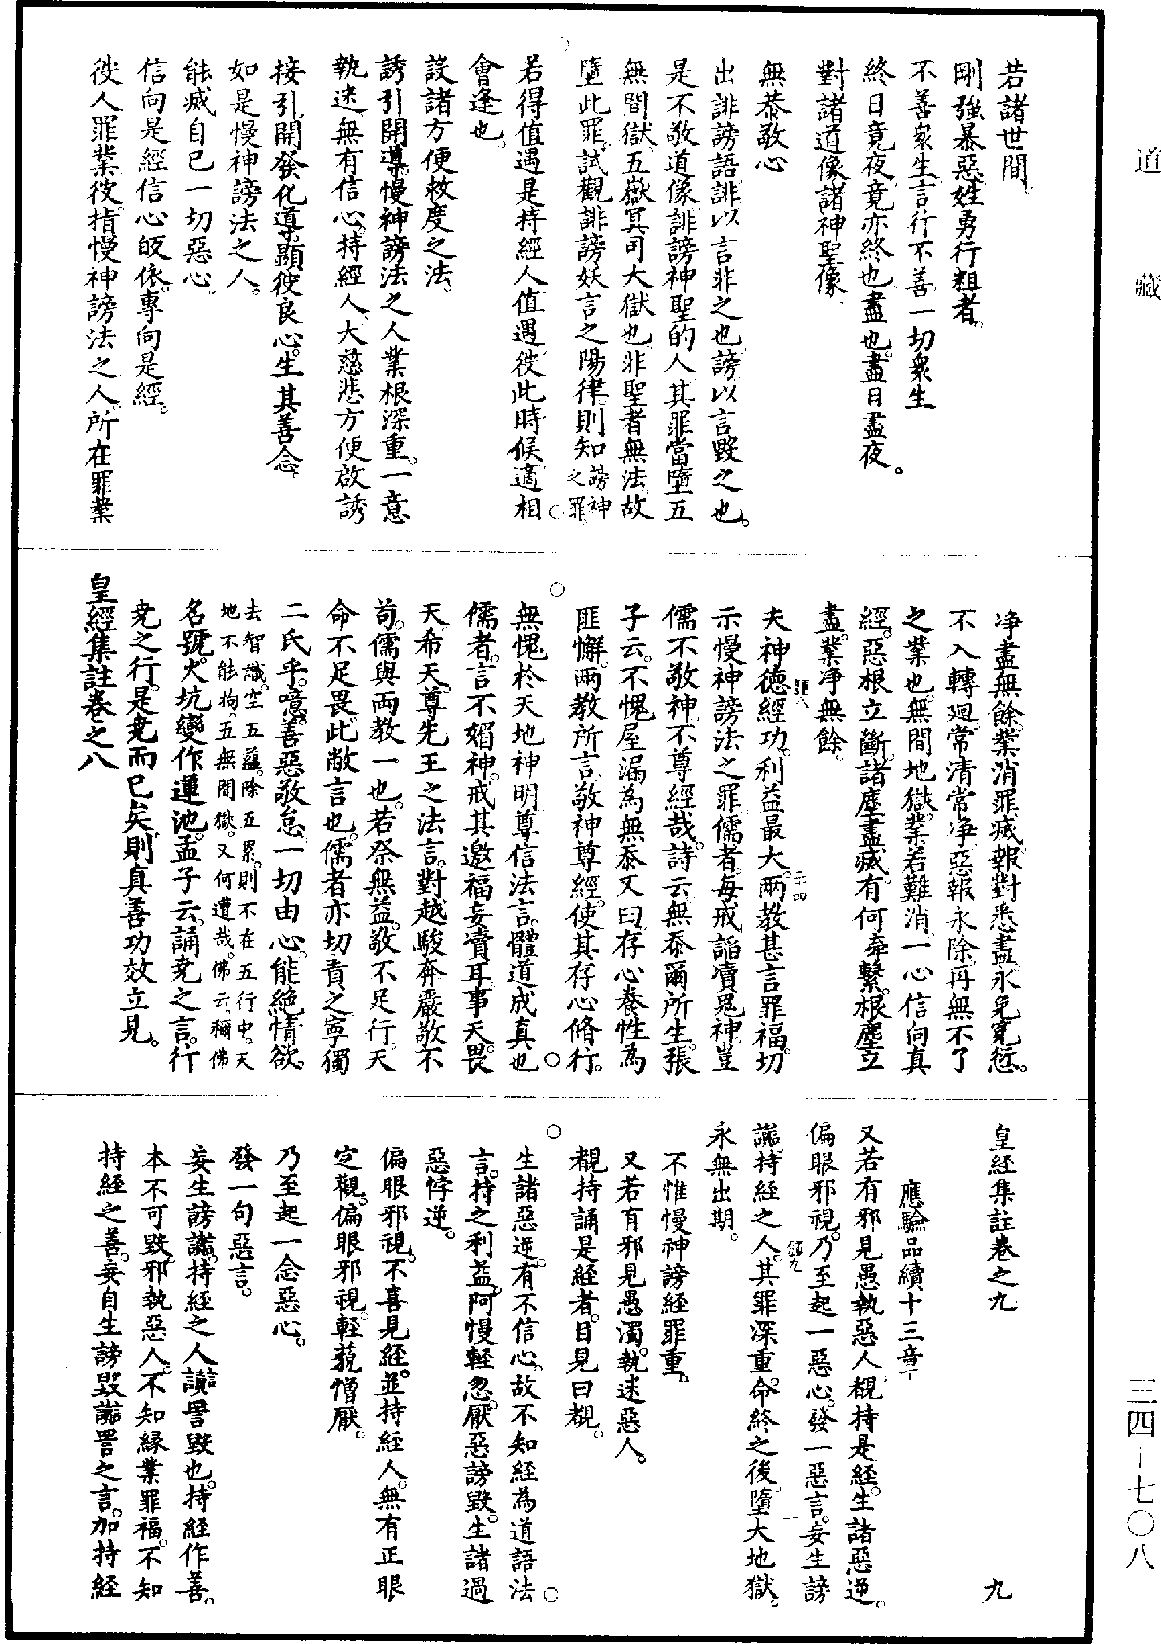 道藏
若諸世間
剛強暴惡姓勇行粗者。
不善衆生言行不善一切衆生
終日竟夜竟亦終也盡也。盡日盡夜。
對諸道像諸神聖像
無恭敬心
出誹謗語誹以言非之也謗以言毀之也。
是不敬道像誹謗神聖的人其罪當墮五
無間獄。五嶽冥司大獄也非聖者無法故
墮此罪。試觀誹謗妖言之陽律。則知謗神之罪
若得值遇是持經人值遇彼此時候適相
會逢也。
設諸方便救度之法
誘引開導慢神謗法之人業根深重。一意
執迷無有信心。持經人大慈悲方便啟誘
接引開發化導顯彼良心。生其善念
如是慢神謗法之人。
能滅自己一切惡心
信向是經信心皈依。專向是經。
彼人罪業彼指慢神謗法之人所在罪業
淨盡無餘。業消罪滅報對悉盡永免寃愆。
不入轉廻常清常淨惡報永除再無不了
之業也無間地獄。業若難消一心信向真
經。惡根立斷諸塵盡滅。有何牽繫。根塵立
盡。業淨無餘。
夫神德經功。利益最大。兩教甚言罪福切
示慢神謗法之罪。儒者每戒諂瀆鬼神。豈
儒不敬神不尊經哉。詩云無忝爾所生。張
子云。不愧屋漏為無忝又曰存心養性為
匪懈。兩教所言敬神尊經。使其存心脩行。
無愧於天地神明尊信法言。體道成真也
儒者。言不媚神。戒其邀福妄瀆耳。事天畏
天希天。尊先王之法言。對越駿奔嚴敬不
苟。儒與兩教一也。若祭無益。敬不足行。天
命不足畏。此敝言也。儒者亦切責之寧獨
二氏乎。噫。善惡敬怠一切由心。能絶情欲。
去智識。空五蘊。除五累。則不在五行中。天
地不能拘。五無間獄。又何遭哉。佛云。稱佛
名號。火坑變作蓮池。孟子云。誦堯之言。行
堯之行。是堯而已矣。則真善功效立見。
皇經集註卷之八
皇經集註卷之九 九
應驗品續十三章
又若有邪見愚執惡人覩持是經。生諸惡逆。
偏眼邪視。乃至起一惡心。發一惡言。妄生謗
讟持經之人。其罪深重。命終之後墮大地獄。
永無出期。
不惟慢神謗經罪重。
又若有邪見愚濁。執迷惡人。
覩持誦是經者。目見曰覩。
生諸惡逆。有不信心。故不知經為道語法
言。持之利益。阿慢輕忽。厭惡謗毀。生諸過
惡悖逆。
偏眼邪視。不喜見經。並持經人。無有正眼
定觀。偏眼邪視。輕藐憎厭。
乃至起一念惡心。
發一句惡言。
妄生謗讟。持經之人讟詈毀也。持經作善。
本不可毀。邪執惡人。不知緣業罪福。不知
持經之善。妄自生謗毀讟詈之言。加持經
三四－七〇八